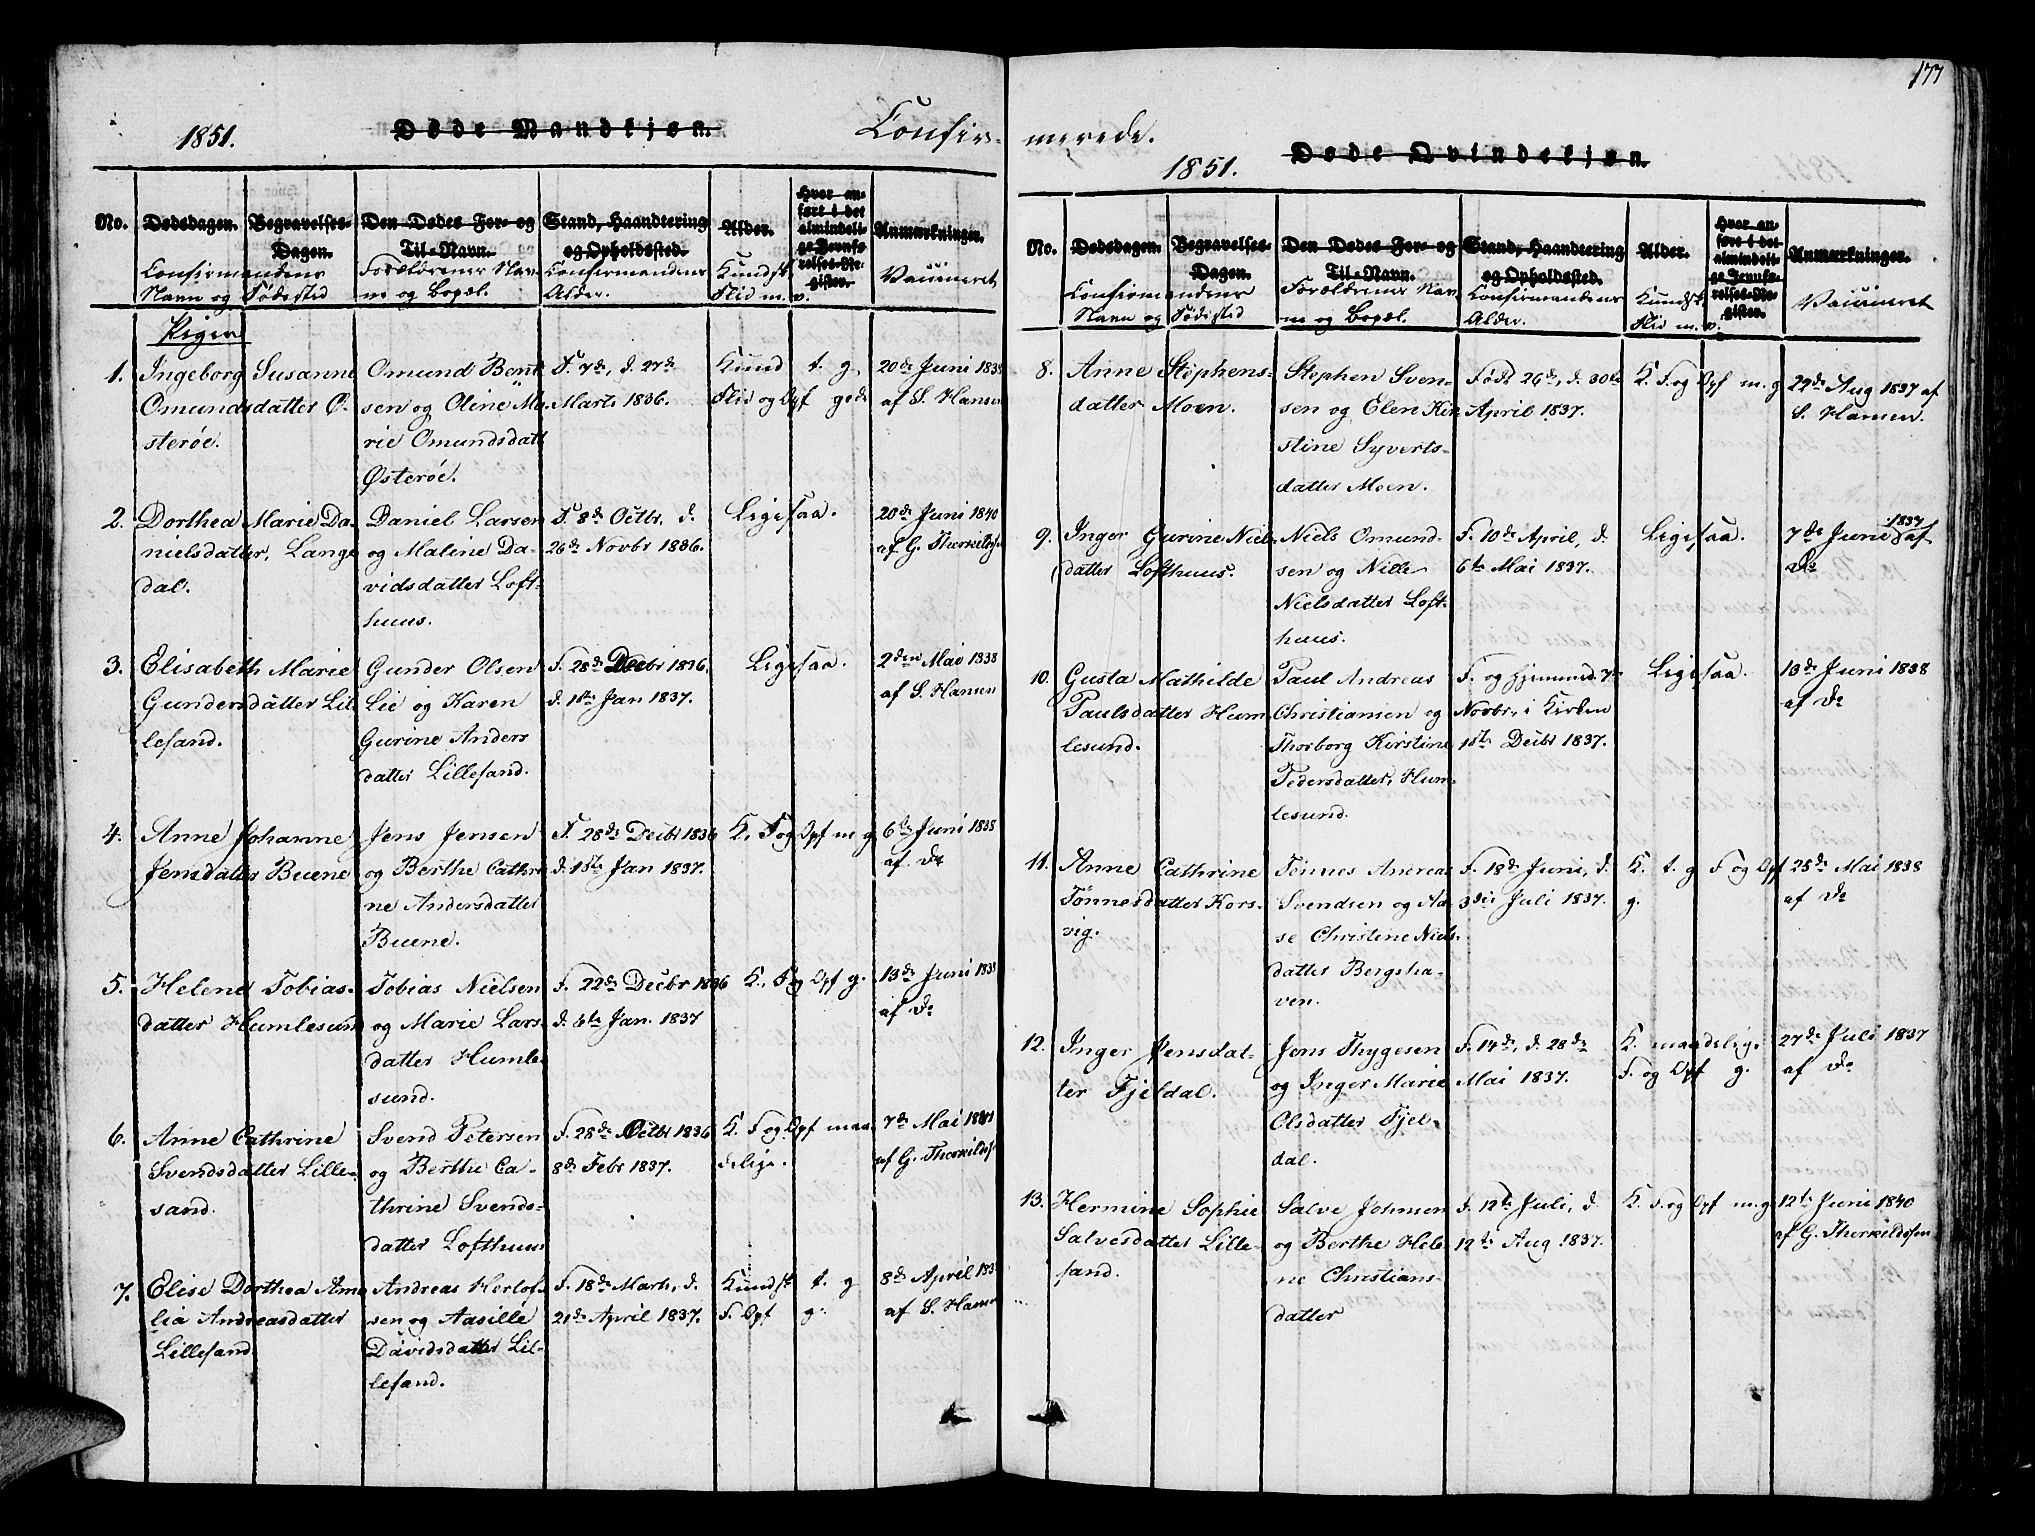 177
1851. Døde Mandkjøn. Confir-
No. Dødsdagen. Begravelses-Dagen. Den Dødes For- og Til-Navn. Stand, Haandtering og Opholdssted. Alder. Hvor anført i det almindelige Jevnførelses-Register. Anmærkninger.
Confirmandens Navn og Fødested
Forældrenes Navne og Bopæl.
Confirmandens Alder.
Kundsk.
Flid m. v.
Vaccineret
Pigen
1. Ingeborg Susanne
Omundsdatter Ø-
sterøe.
Omund Bent
sen og Oline Ma
rie Omundsdatt
Østerøe.
F. 7de, d. 27de
Marts 1836.
Kund t. g
Flid og Opf godt
20de Juni 1838
af S. Hansen
2. Dorthea Marie Da-
nielsdatter, Lange
dal.
Daniel Larsen
og Maline Da-
vidsdatter Loft-
huus.
F. 8de Octbr, d.
26de Novbr 1836.
Ligesaa.
20de Juni 1840
af G. Therkelds
3. Elisabeth Marie
Gundersdatter Lil
lesand.
Gunder Olsen
Lie og Karen
Gurine Anders
datter Lillesand.
F. 28de Decbr 1836.
d. 1ste Jan 1837.
Ligesaa.
2den Mai 1838
af S. Hansen
4. Anne Johanne
Jensdatter Buene
Jens Jensen
og Berthe Cathri
ne Andersdatter
Buene.
F. 28de Decbr 1836
d. 1ste Jan 1837.
K. F og Opf m g
6te Juni 1838
af do
5. Helene Tobias-
datter Humlesun
Tobias Nielsen
og Marie Lars-
datter Humle-
sund.
F. 22de Decbr 1836
d. 6te Jan. 1837
K. F og Opf g.
13de Juni 1838
af do
6. Anne Cathrine
Svendsdatter Lille-
sand.
Svend Petersen
og Berthe Ca-
thrine Svends-
datter Lofthuus
F. 28de Octbr 1836
8de Febr 1837.
K. F og Opf maa
delige.
7de Mai 1841
af G. Therkilds
7. Elise Dorthea Ama
lia Andreasdatter
Lillesand
Andreas Herlof-
sen og Aasille
Davidsdatter Lil-
lesand.
F. 18de Marts, d.
21de April 1837.
Kundsk t. g
F. Opf g.
8de April 183
af S. Hansen
merede.
1851. Døde Qvindekjøn.
No. Dødsdagen. Begravelses-Dagen. Den Dødes For- og Til-Navn. Stand, Haandtering og Opholdssted. Alder. Hvor anført i det almindelige Jevnførelses-Register. Anmærkninger.
Confirmandens Navn og Fødested
Forældrenes Navne og Bopæl.
Confirmandens Alder.
Kundsk.
Flid m. v.
Vaccineret
8. Anne Stephens-
datter Moen.
Stephen Sven-
sen og Elen Kir
stine Syverts-
datter Moen.
Født 26de, d. 30te
April 1837.
K. F. og Opf m. g
29de Aug 1837 af
S. Hansen.
9. Inger Gurine Niels
datter Lofthuus.
Niels Omund-
sen og Nille
Nielsdatter Loft-
huus.
F. 10de April, d.
6te Mai 1837.
Ligesaa.
7de Juni 1837 af
do
10. Gusta Mathilde
Paulsdatter Hum
lesund.
Paul Andreas
Christiansen og
Thorborg Kirstine
Pedersdatter, Hum-
lesund.
F. og hjemmed. 7de
Novbr, i Kirken
1ste Decbr 1837.
Ligesaa.
13de Juni 1838
af do
11. Anne Cathrine
Tønnesdatter Kors-
vig.
Tønnes Andreas
Svendsen og Aa-
se Christine Niels-
datter Bergsha-
ven.
F. 18de Juni, d.
3die Juli 1837.
K. t. g F og Opf
g.
25de Mai 1838
af do
12. Inger Jensdat-
ter Fjeldal.
Jens Thygesen
og Inger Marie
Olsdatter Fjel-
dal.
F. 14de, d. 28de
Mai 1837.
K. maadelig.
F. og Opf g.
27de Juli 1837
af do
13. Hermine Sophie
Salvesdatter Lille-
sand.
Salve Johnsen
og Berthe Hele
ne Christians-
datter
F. 12te Juli, d.
12te Aug 1837.
K. F. og Opf m. g
12te Juni 1840
af G. Therkildsen